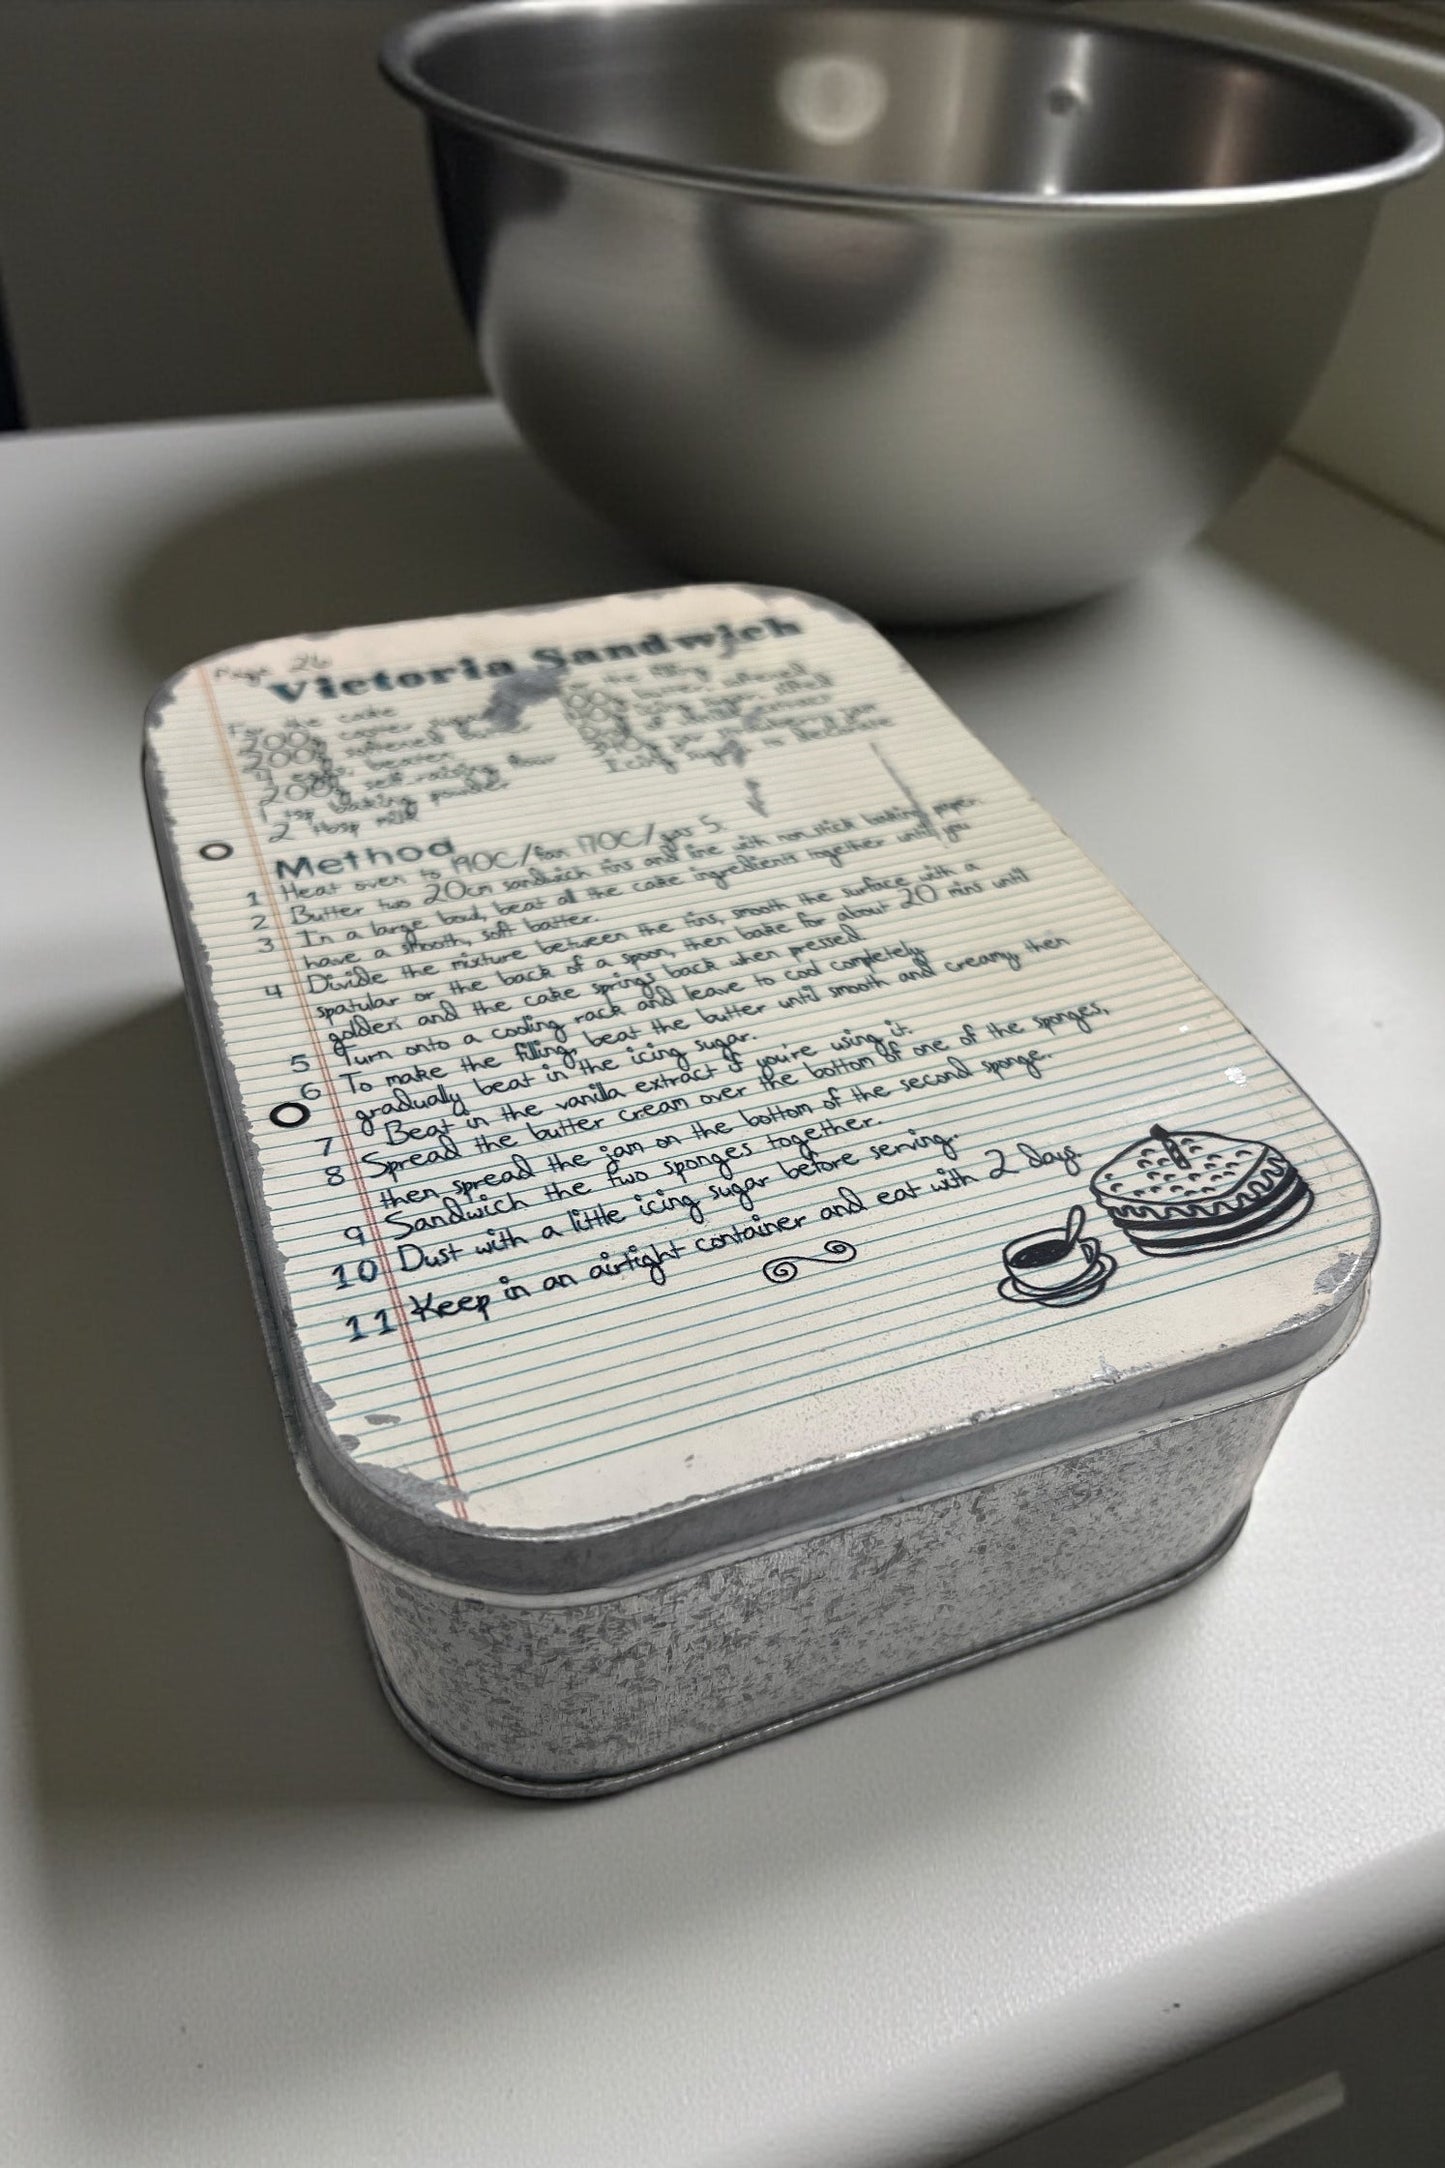 Page 26
Victoria Sandwich
For the cake
200g caster sugar
200g softened butter
4 eggs, beaten
200g self-raising flour
1 tsp baking powder
2 tbsp milk
the filling
butter, softened
icing sugar
vanilla extract
Icing sugar to decorate
Method
1 Heat oven to 190C/fan 170C/gas 5.
2 Butter two 20cm sandwich tins and line with non-stick baking paper.
3 In a large bowl, beat all the cake ingredients together until you
have a smooth, soft batter.
4 Divide the mixture between the tins, smooth the surface with a
spatular or the back of a spoon, then bake for about 20 mins until
golden and the cake springs back when pressed.
5 Turn onto a cooling rack and leave to cool completely.
6 To make the filling, beat the butter until smooth and creamy, then
gradually beat in the icing sugar.
7 Beat in the vanilla extract if you're using it.
8 Spread the butter cream over the bottom of one of the sponges,
then spread the jam on the bottom of the second sponge.
9 Sandwich the two sponges together.
10 Dust with a little icing sugar before serving.
11 Keep in an airtight container and eat with 2 days.